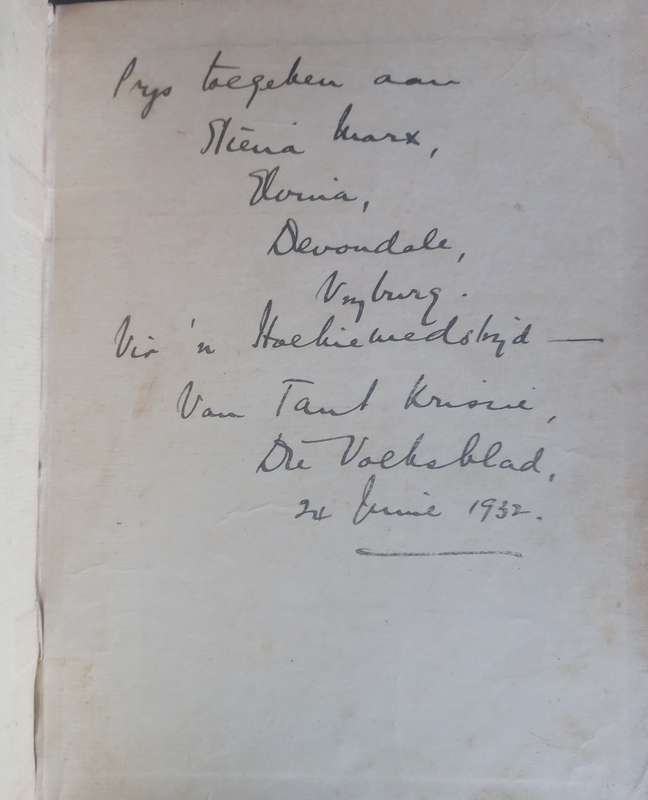 Prys toegeken aan
Stienia Marx,
Elvinia,
Devondale,
Vryburg.
Vir 'n Hoekiewedstryd —
Van Tant Krissie,
Die Volksblad,
24 Junie 1932.